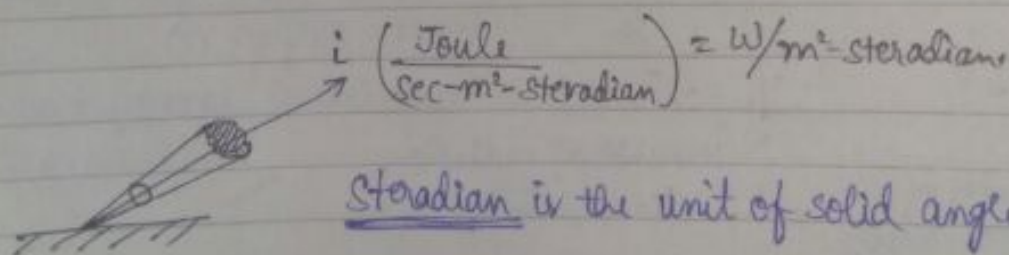 i (Joule / sec-m²-steradian) = W/m²-steradian.
Steradian is the unit of solid angle